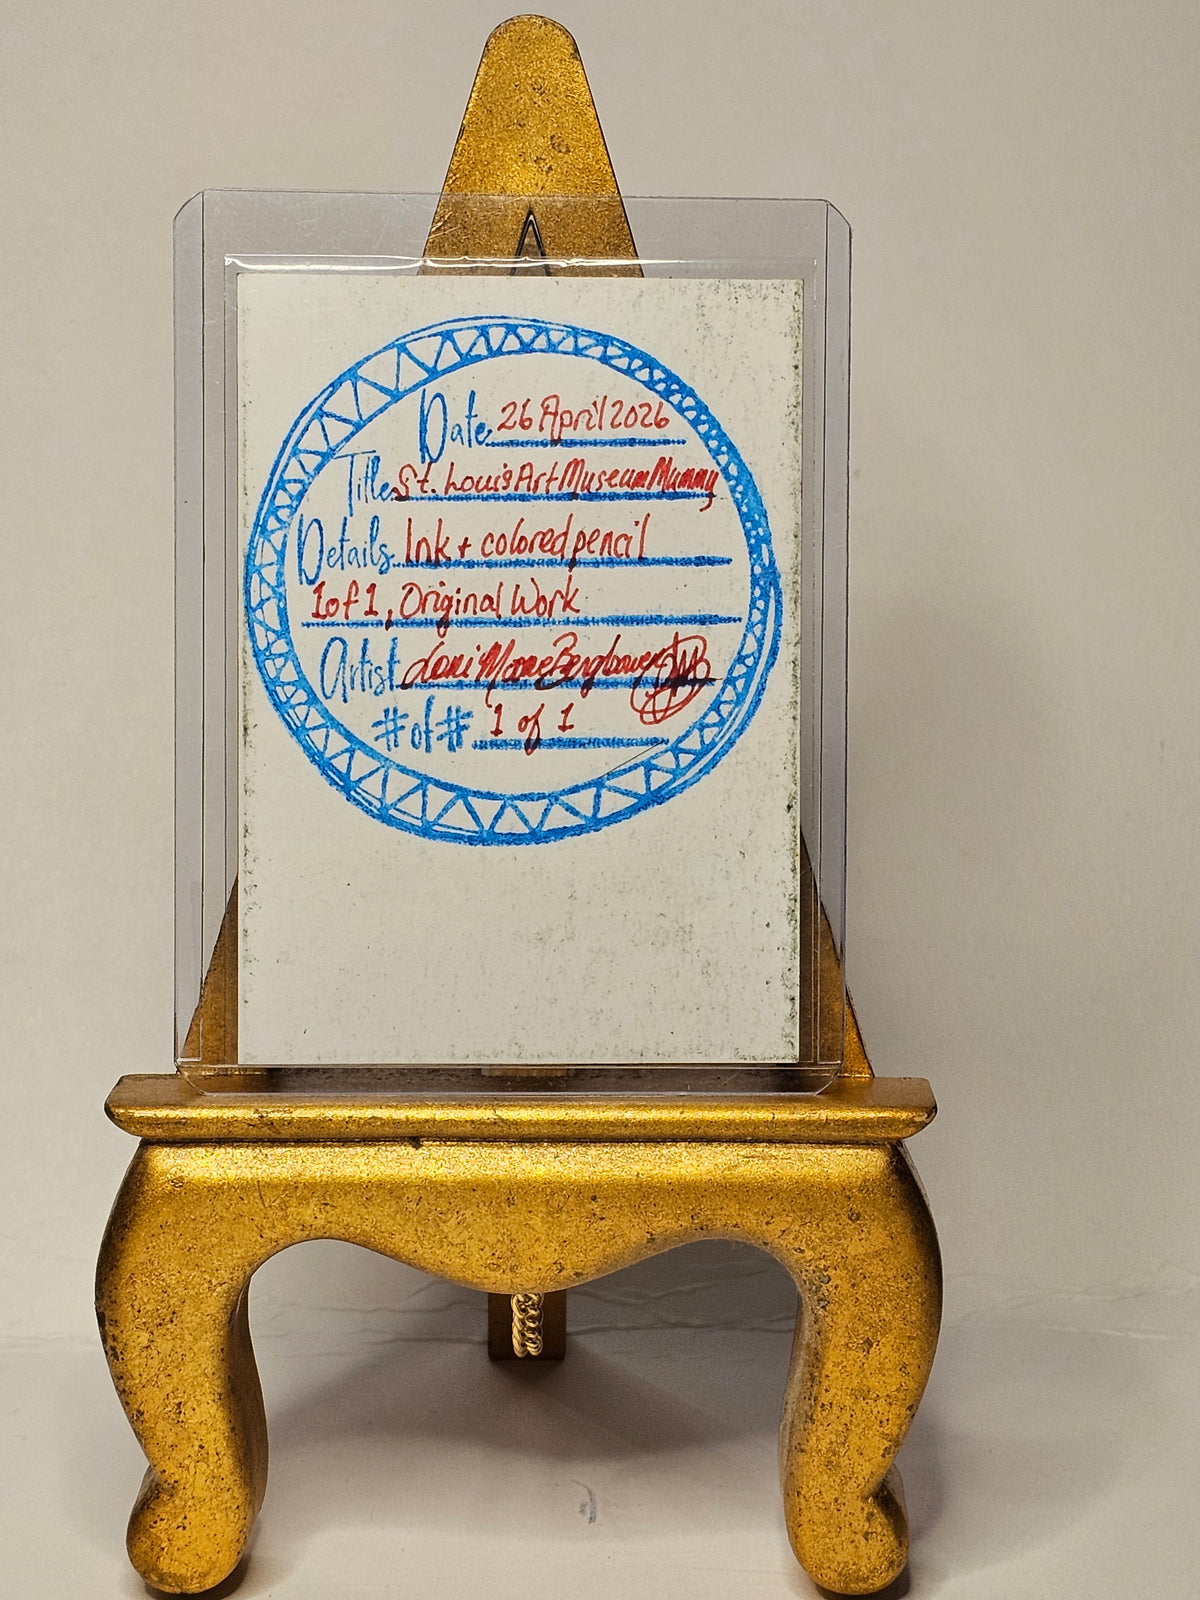 Date 26 April 2026
Title St. Louis Art Museum Mummy
Details Ink + colored pencil
1 of 1, Original Work
Artist Lori Marie Bergbower
# of # 1 of 1